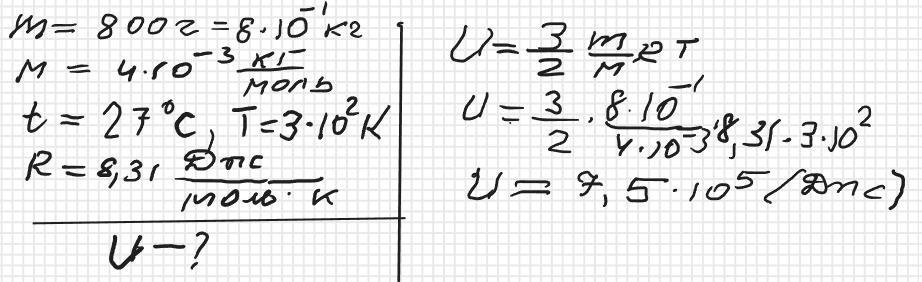 m = 800 г = 8·10⁻¹ кг
M = 4·10⁻³ кг/моль
t = 27°C, T = 3·10² K
R = 8,31 Дж/моль·К
U - ?
U = 3/2 m/M RT
U = 3/2 · 8·10⁻¹/4·10⁻³ · 8,31·3·10²
U = 7,5·10⁵ (Дж)